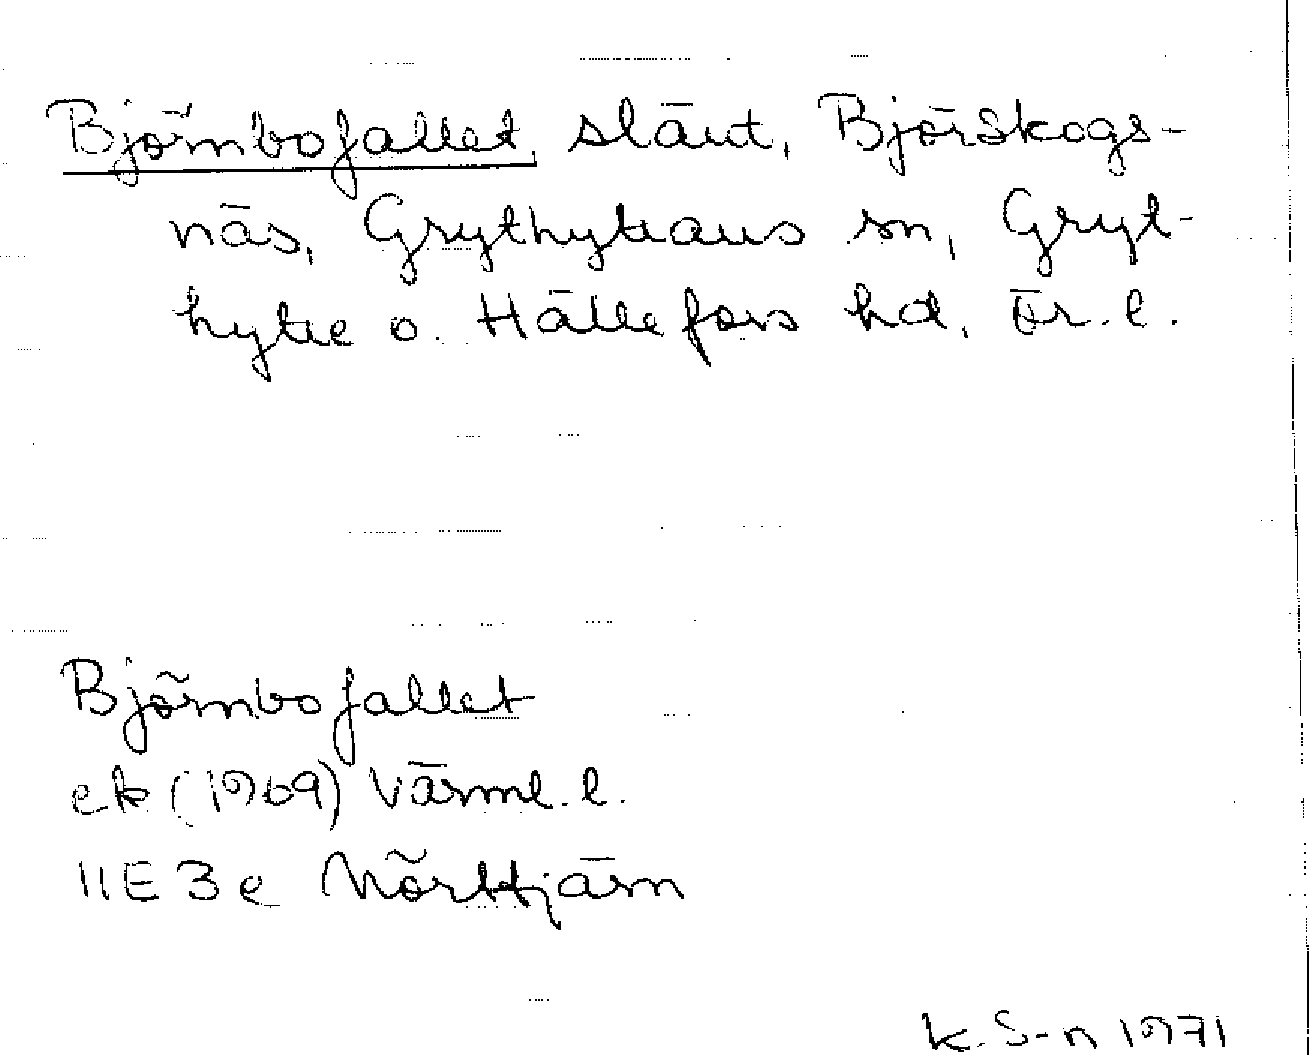 Björnbofallet, slänt, Björskogs-
näs, Grythyttans sn, Gryt-
hytte o. Hällefors hd, Ör. l.
Björnbofallet
ek (1969) Värml. l.
11E 3e Mörttjärn
K. S-n 1971